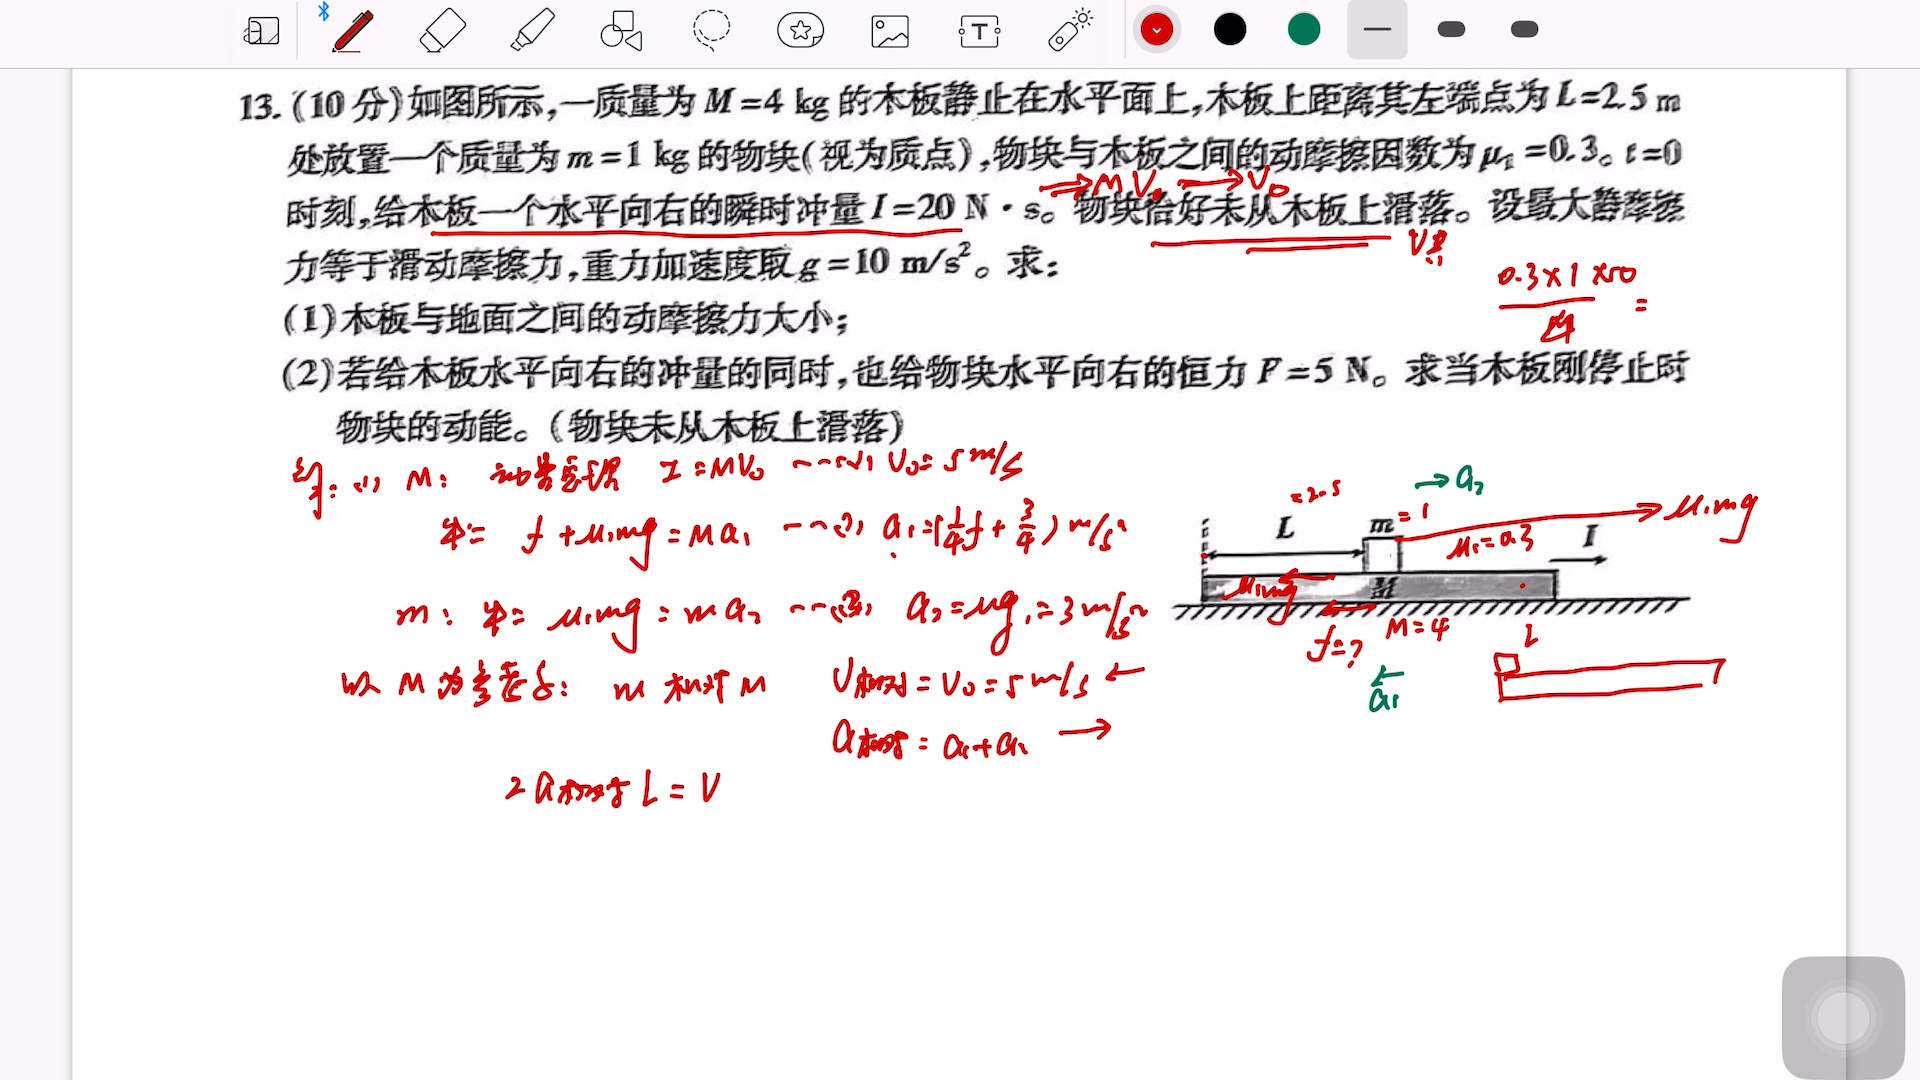 13.(10分)如图所示,一质量为M=4 kg的木板静止在水平面上,木板上距离其左端点为L=2.5 m
处放置一个质量为m=1 kg的物块(视为质点),物块与木板之间的动摩擦因数为μ₁=0.3。t=0
⇒MV₀ →V₀
时刻,给木板一个水平向右的瞬时冲量I=20 N·s。物块恰好未从木板上滑落。设最大静摩擦
V共
力等于滑动摩擦力,重力加速度取g=10 m/s²。求:
0.3×1×10
M =
(1)木板与地面之间的动摩擦力大小;
(2)若给木板水平向右的冲量的同时,也给物块水平向右的恒力F=5 N。求当木板刚停止时
物块的动能。(物块未从木板上滑落)
(1) M: 动量定理 I=MV₀ ---(1) V₀=5m/s
牛二 f+μ₁mg=Ma₁ ---(2) a₁=(1/4f+3/4)m/s²
m: 牛二 μ₁mg=ma₂ ---(3) a₂=μg=3m/s²
以M为参考系: m相对M V相对=V₀=5m/s ←
a相对=a₁+a₂ →
2a相对L=V
→a₂
=2.5
L
m
=1
μ₁mg
μ₁=0.3
I
μ₁mg
M
f=?
M=4
a₁